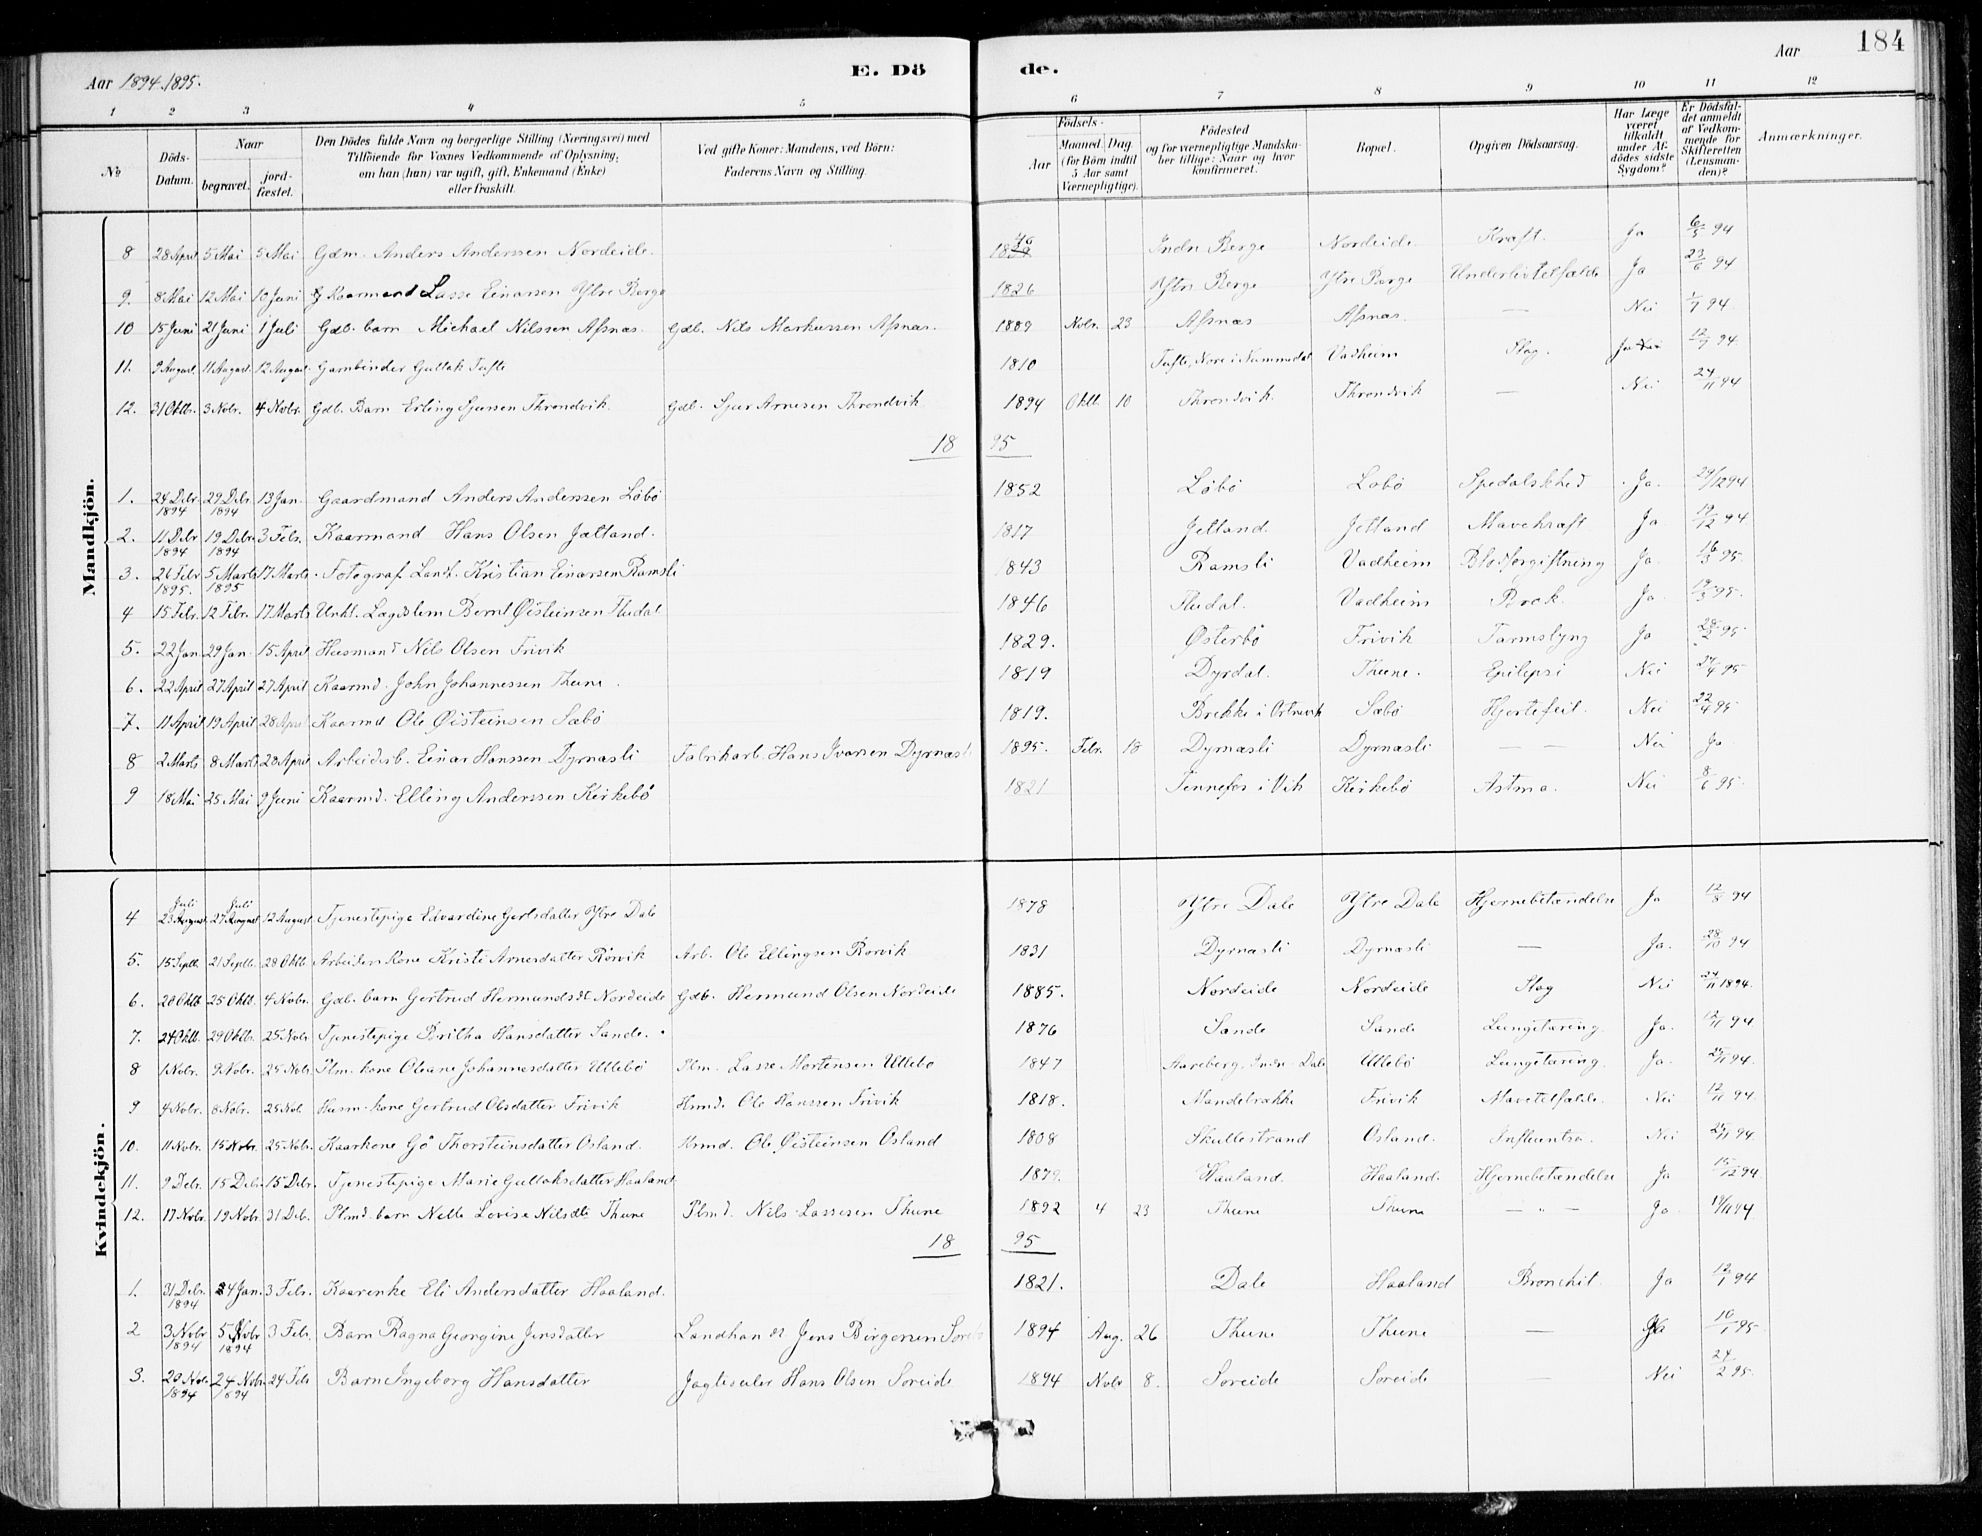 184
Aar 1894. 1895.
E. Dö de.
Aar
1 2 3 4 5 6 7 8 9 10 11 12
№
Döds-Datum.
Naar begravet. jordfæstet.
Den Dödes fulde Navn og borgerlige Stilling (Næringsvei) med Tilföiende for Voxnes Vedkommende af Oplysning, om han (hun) var ugift, gift, Enkemand (Enke) eller fraskilt.
Ved gifte Koner: Mandens, ved Börn: Faderens Navn og Stilling.
Födsels- Aar Maaned. Dag. (for Börn indtil 5 Aar samt Værnepligtige).
Födested og for værnepligtige Mandskaber tillige: Naar og hvor konfirmeret.
Bopæl.
Opgiven Dödsaarsag.
Har Læge været tilkaldt under Afdödes sidste Sygdom?
Er Dödsfaldet anmeldt af Vedkommende for Skifteretten (Lensmanden)?
Anmærkninger.
Mandkjön.
8 28 April 5 Mai 5 Mai Gdm. Anders Anderssen Nordeide. 18 Indre Berge Nordeide Kræft. Ja 6/5 94
9. 8 Mai 12 Mai 10 Juni Kaarmand Lasse Einarsen Ytre Berge 1826 Ytre Berge Ytre Berge Underlivstilfælde Ja 23/6 94
10 15 Juni 21 Juni 1 Juli Gdb. barn Michael Nilssen Afsnæs. Gdb. Nils Markussen Afsnæs. 1889 Novbr. 23 Afsnæs Afsnæs. — Nei 1/7 94
11. 9 August. 11 August. 12 August. Garnbinder Gullak Tufte 1810 Tufte, Nore i Nummedal Vadheim Slag. Ja 12/9 94.
12. 31 Oktb. 3 Nobr. 4 Novbr. Gdb. Barn Erling Sjursen Throndvik. Gdb. Sjur Arnesen Throndvik 1894 Oktb. 10 Throndvik. Throndvik — Nei 24/11 94
18 95
1. 24 Debr. 1894 29 Debr. 1894 13 Jan. Gaardmand Anders Anderssen Löbö 1852 Löbö Löbö Spedalskhed Ja. 29/12 94
2. 11 Debr 1894 19 Debr. 1894 3 Febr. Kaarmand Hans Olsen Jetland. 1817 Jetland. Jetland Mavekræft Ja 19/12 94.
3. 26 Febr 1895. 5 Marts 1895 17 Marts. Fotograf Kristian Einarsen Ramsli 1843 Ramsli Vadheim Blodforgiftning Ja. 16/3 95.
4 15 Febr. 12 Febr. 17 Marts Ugift. Lægdslem Bernt Øisteinsen Fludal 1846 Fludal. Vadheim Brok. Ja. 19/3 95.
5. 22 Jan. 29 Jan. 15 April Husmand Nils Olsen Frivik 1829. Østerbö Frivik Tarmslyng Ja 28/2 95.
6. 22 April 27 April 27 April Kaarmd. John Johannessen Thune. 1819 Dyrdal. Thune. Epilepsi Nei 27/4 95
7. 11 April 19 April 28 April Kaarmd Ole Øisteinsen Sæbö 1819. Brekke i Ortnevik Sæbö Hjertefeil. Nei 22/4 95.
8 2 Marts 8 Marts 28 April Arbeiderb. Einar Hanssen Dyrnæsli Fabrikarb. Hans Ivarsen Dyrnæsli 1895. Febr. 18 Dyrnæsli Dyrnæsli — Nei Ja
9 18 Mai 25 Mai 9 Juni Kaarmd. Elling Anderssen Kirkebö 1821 Tennefos i Vik Kirkebö Astma. Nei 8/6 95.
Kvindekjön.
4 Juli 23 August. Juli 27 August 12 August Tjenestepige Edvardine Gertsdatter Ytre Dale 1878 Ytre Dale Ytre Dale Hjernebetændelse Ja 12/8 94
5. 15 Septb. 21 Septb. 28 Oktb. Arbeiders kone Kristi Arnesdatter Rörvik Arb. Ole Ellingsen Rörvik 1831 Dyrnæsli Dyrnæsli — Ja. 28/10 94
6. 20 Oktb. 25 Oktb. 4 Novbr. Gdb. barn Gertrud Hermundsdt Nordeide Gdb. Hermund Olsen Nordeide 1885. Nordeide Nordeide Slag Nei 24/11 1894.
7. 24 Oktb. 29 Oktb. 25 Novbr. Tjenestepige Britha Hansdatter Sande. 1876 Sande Sande Lungetæring. Ja. 12/11 94
8 1 Nobr. 9 Nobr. 25 Nobr. Plm. kone Oleane Johannesdatter Ullebö Plm. Lasse Mortensen Ullebö 1847 Aareberg, Indre Dale Ullebö Lungetæring. Ja. 25/11 94.
9 4 Nobr. 8 Nobr. 25 Nob. Husm. kone Gertrud Olsdatter Frivik Hsmd. Ole Hanssen Frivik 1818. Mandelrække Frivik Mavetilfælde. Nei 12/11 94.
10. 11 Nobr. 15 Nobr. 25 Nobr. Kaarkone Gö Thorsteinsdatter Osland. Krmd. Ole Øisteinsen Osland 1808 Skullestrand Osland. Influentsa. Nei 25/11 94.
11. 9 Debr. 15 Debr. 15 Debr. Tjenestepige Marie Gullaksdatter Haaland 1879. Haaland. Haaland. Hjernebetændelse Ja 15/12 94
12. 17 Nobr. 19 Nobr. 31 Deb. Plmd. barn Nelle Lovise Nilsdt. Thune Plmd. Nils Lassesen Thune 1892 4 23 Thune Thune — " — Ja 1/11 94
18 95
1. 31 Debr. 1894 4 Jan. 3 Febr. Kaarenke Eli Andersdatter Haaland. 1821. Dale Haaland Bronchit. Ja 12/1 94
2 3 Nobr 1894 5 Nobr 1894 3 Febr. Barn Ragna Georgine Jensdatter Landhand Jens Birgersen 1894 Aug. 26 Thune Thune — Ja 10/1 95
3. 20 Nobr. 1894 24 Nobr. 1894 24 Feb Barn Ingeborg Hansdatter Jagteseiler Hans Olsen Söreide 1894 Nobr 8. Söreide Söreide — Nei 24/2 95.